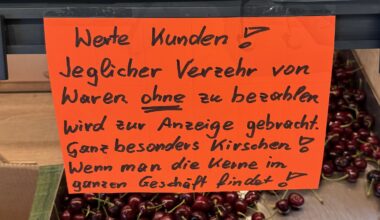 Werte Kunden!
Jeglicher Verzehr von
Waren ohne zu bezahlen
wird zur Anzeige gebracht.
Ganz besonders Kirschen!
Wenn man die Kerne im
ganzen Geschäft findet!